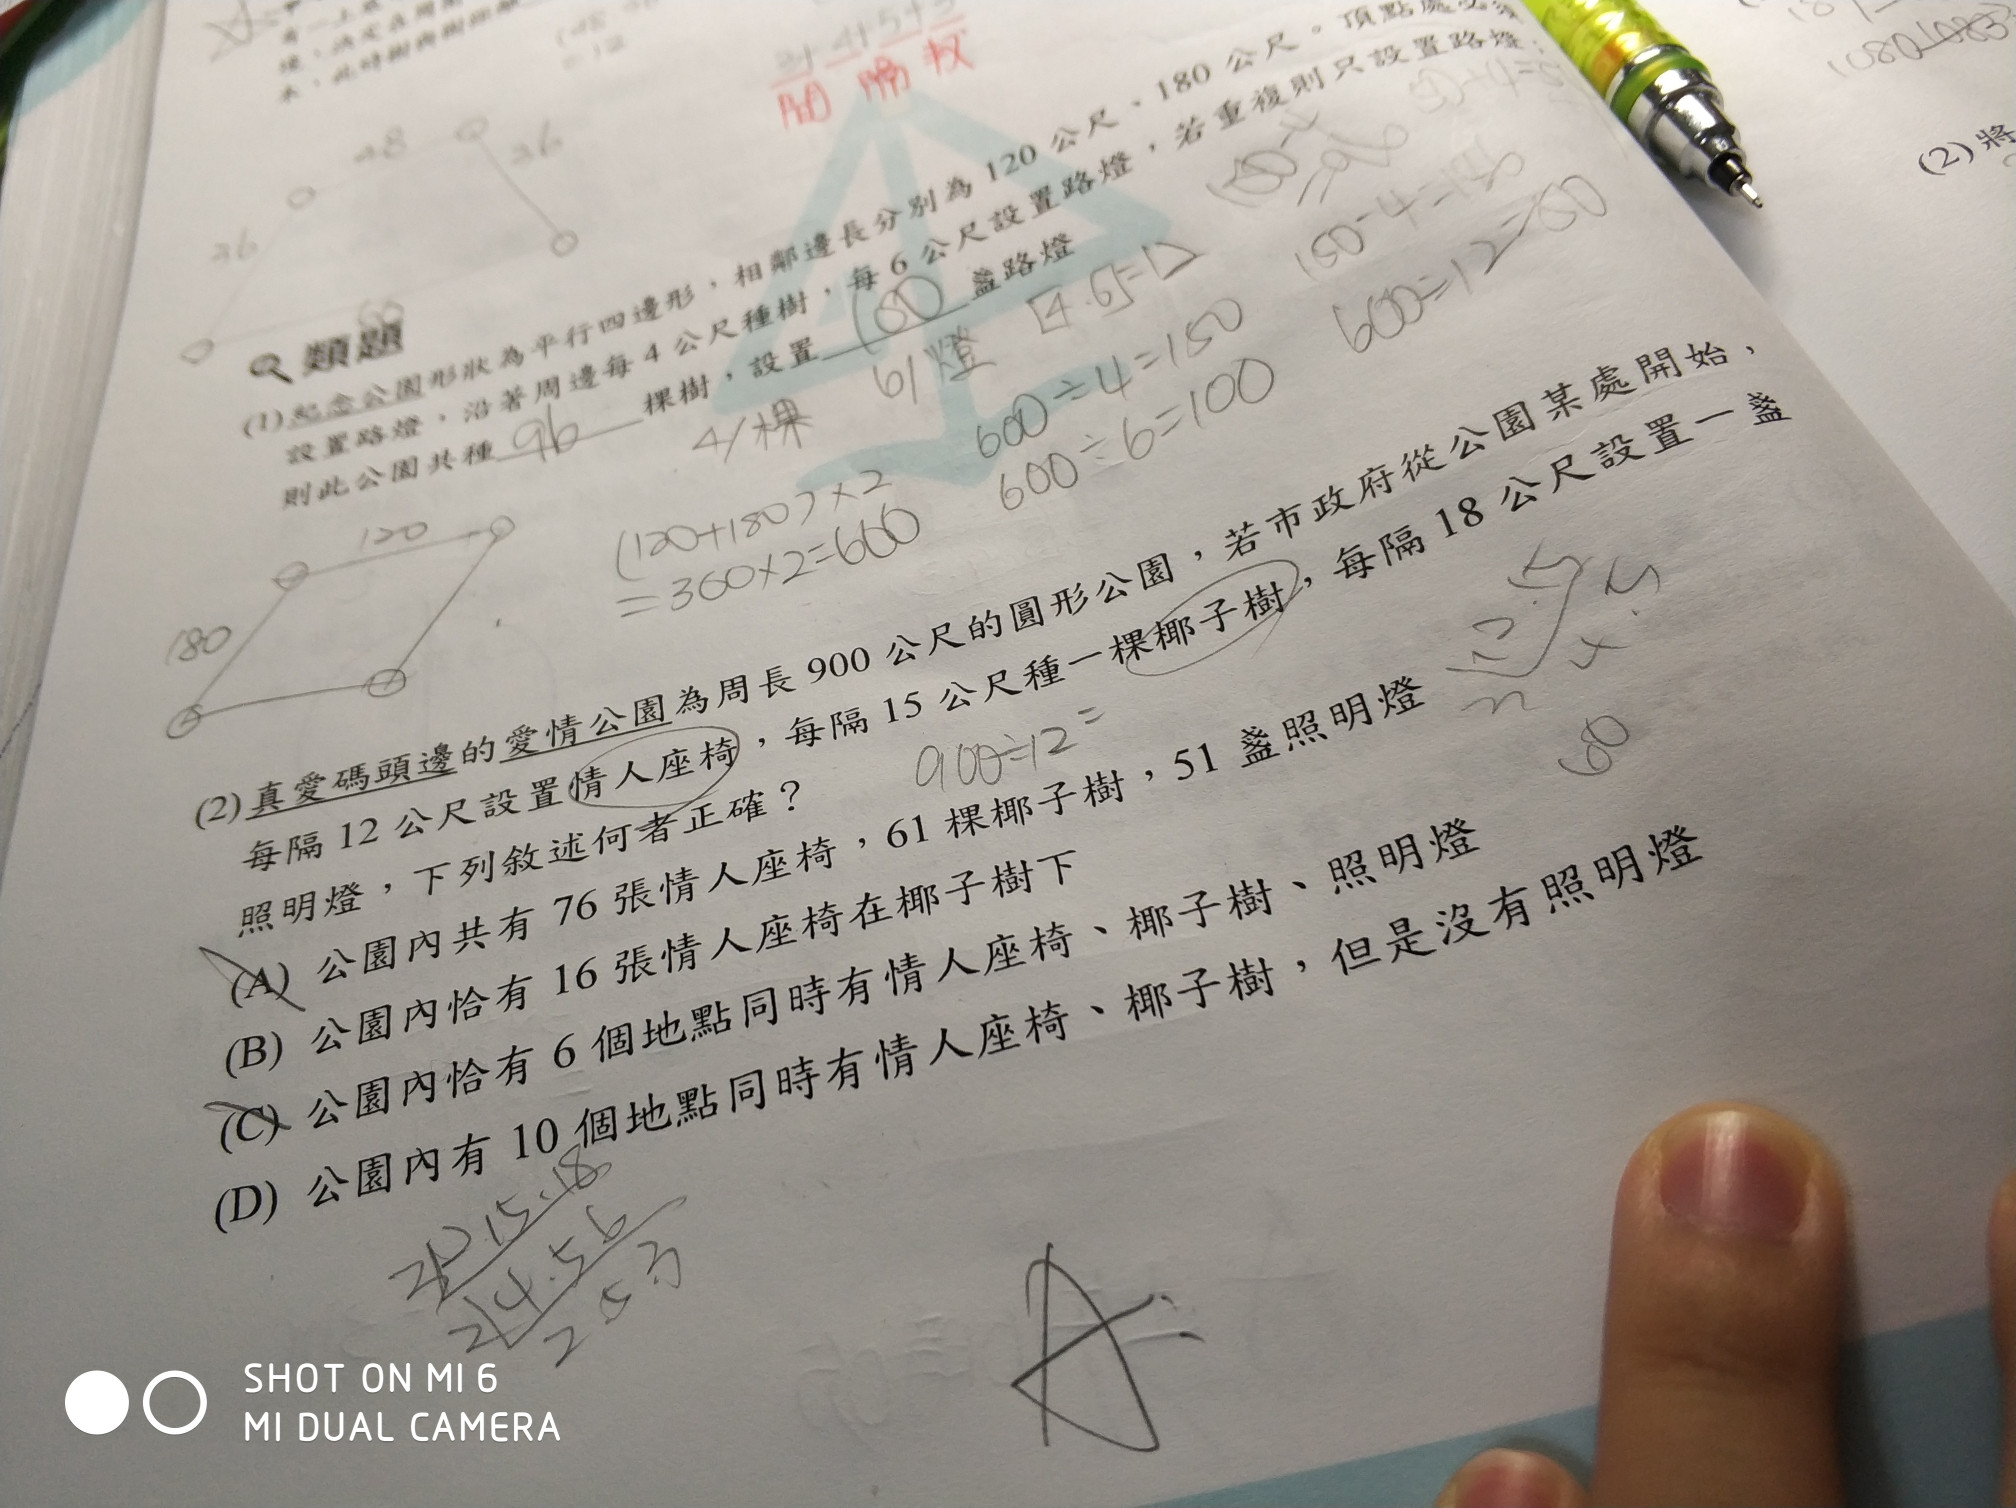 48
36
36
間隔數
類題
(1)紀念公園形狀為平行四邊形,相鄰邊長分別為 120 公尺、180 公尺。頂點處必須
設置路燈,沿著周邊每 4 公尺種樹,每 6 公尺設置路燈,若重複則只設置路燈;
則此公園共種 棵樹,設置 100 盞路燈
41棵
61燈
[4.6]=12
600÷4=150
600÷6=100
600÷12=50
120
180
(120+180)×2
=300×2=600
(2)真愛碼頭邊的愛情公園為周長 900 公尺的圓形公園,若市政府從公園某處開始,
每隔 12 公尺設置情人座椅,每隔 15 公尺種一棵椰子樹,每隔 18 公尺設置一盞
照明燈,下列敘述何者正確?
900÷12=
60
(A) 公園內共有 76 張情人座椅,61 棵椰子樹,51 盞照明燈
(B) 公園內恰有 16 張情人座椅在椰子樹下
(C) 公園內恰有 6 個地點同時有情人座椅、椰子樹、照明燈
(D) 公園內有 10 個地點同時有情人座椅、椰子樹,但是沒有照明燈
(2) 將
SHOT ON MI 6
MI DUAL CAMERA